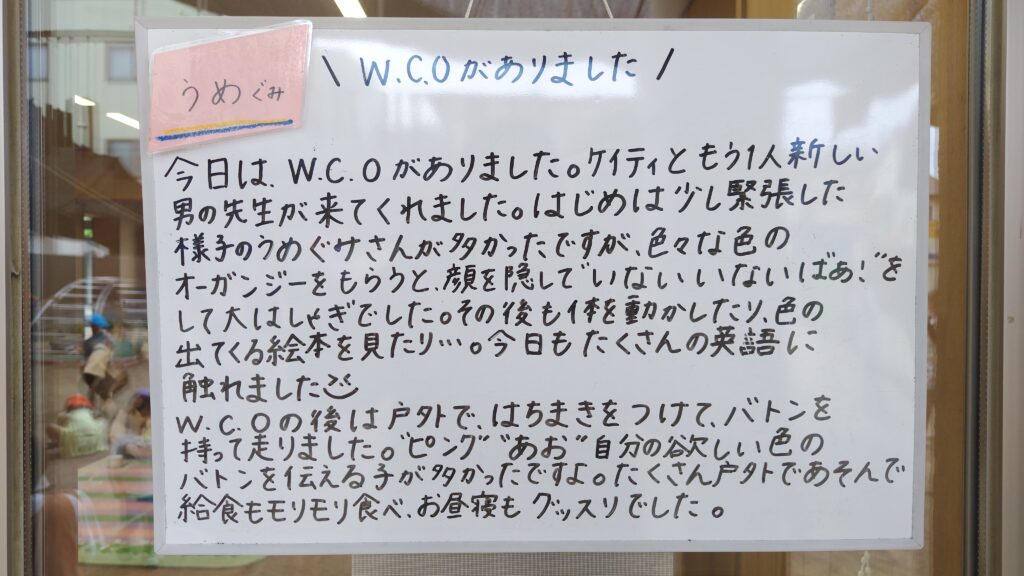 うめぐみ
\ W.C.Oがありました /
今日は、W.C.Oがありました。ケイティともう1人新しい
男の先生が来てくれました。はじめは少し緊張した
様子のうめぐみさんが多かったですが、色々な色の
オーガンジーをもらうと、顔を隠して"いないいないばぁ!"を
して大はしゃぎでした。その後も体を動かしたり、色の
出てくる絵本を見たり…。今日もたくさんの英語に
触れました
W.C.Oの後は戸外で、はちまきをつけて、バトンを
持って走りました。"ピンク""あお"自分の欲しい色の
バトンを伝える子が多かったですよ。たくさん戸外であそんで
給食もモリモリ食べ、お昼寝もグッスリでした。